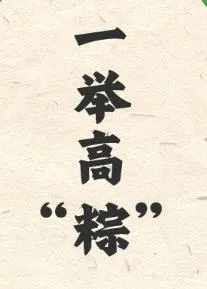 一举高“粽”